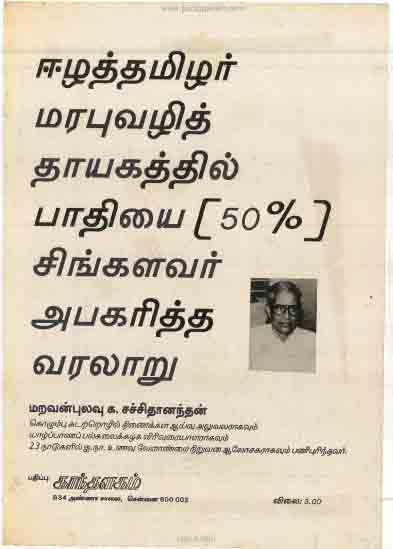 ஈழத்தமிழர்
மரபுவழித்
தாயகத்தில்
பாதியை [50%]
சிங்களவர்
அபகரித்த
வரலாறு
மறவன்புலவு க. சச்சிதானந்தன்
கொழும்பு கடற்றொழில் திணைக்கள ஆய்வு அலுவலராகவும்
யாழ்ப்பாணப் பல்கலைக்கழக விரிவுரையாளராகவும்
23 நாடுகளில் ஐ.நா. உணவு வேளாண்மை நிறுவன ஆலோசகராகவும் பணிபுரிந்தவர்.
பதிப்பு: காந்தளகம்
834 அண்ணா சாலை, சென்னை 600 002
விலை: 5.00